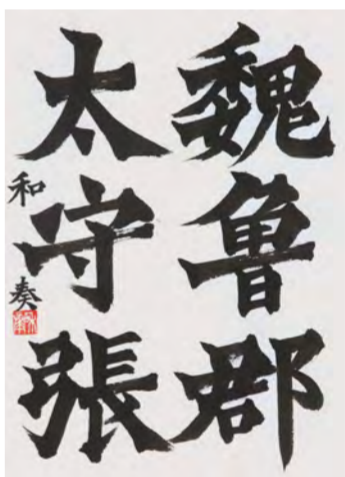 魏魯郡
太守張
和奏